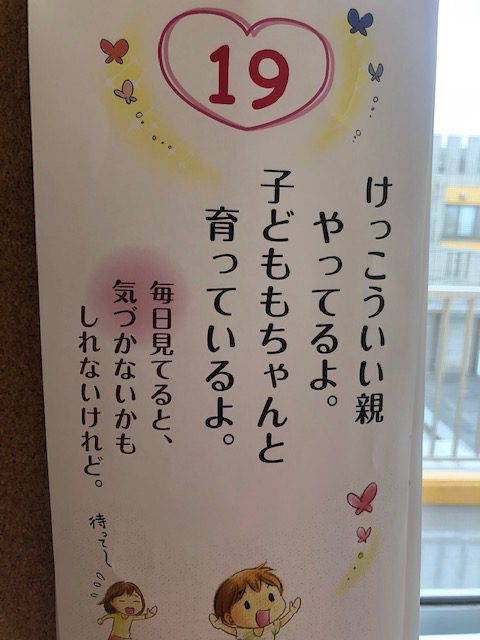 19
けっこういい親
やってるよ。
子どももちゃんと
育っているよ。
毎日見てると、
気づかないかも
しれないけれど。
待って〜